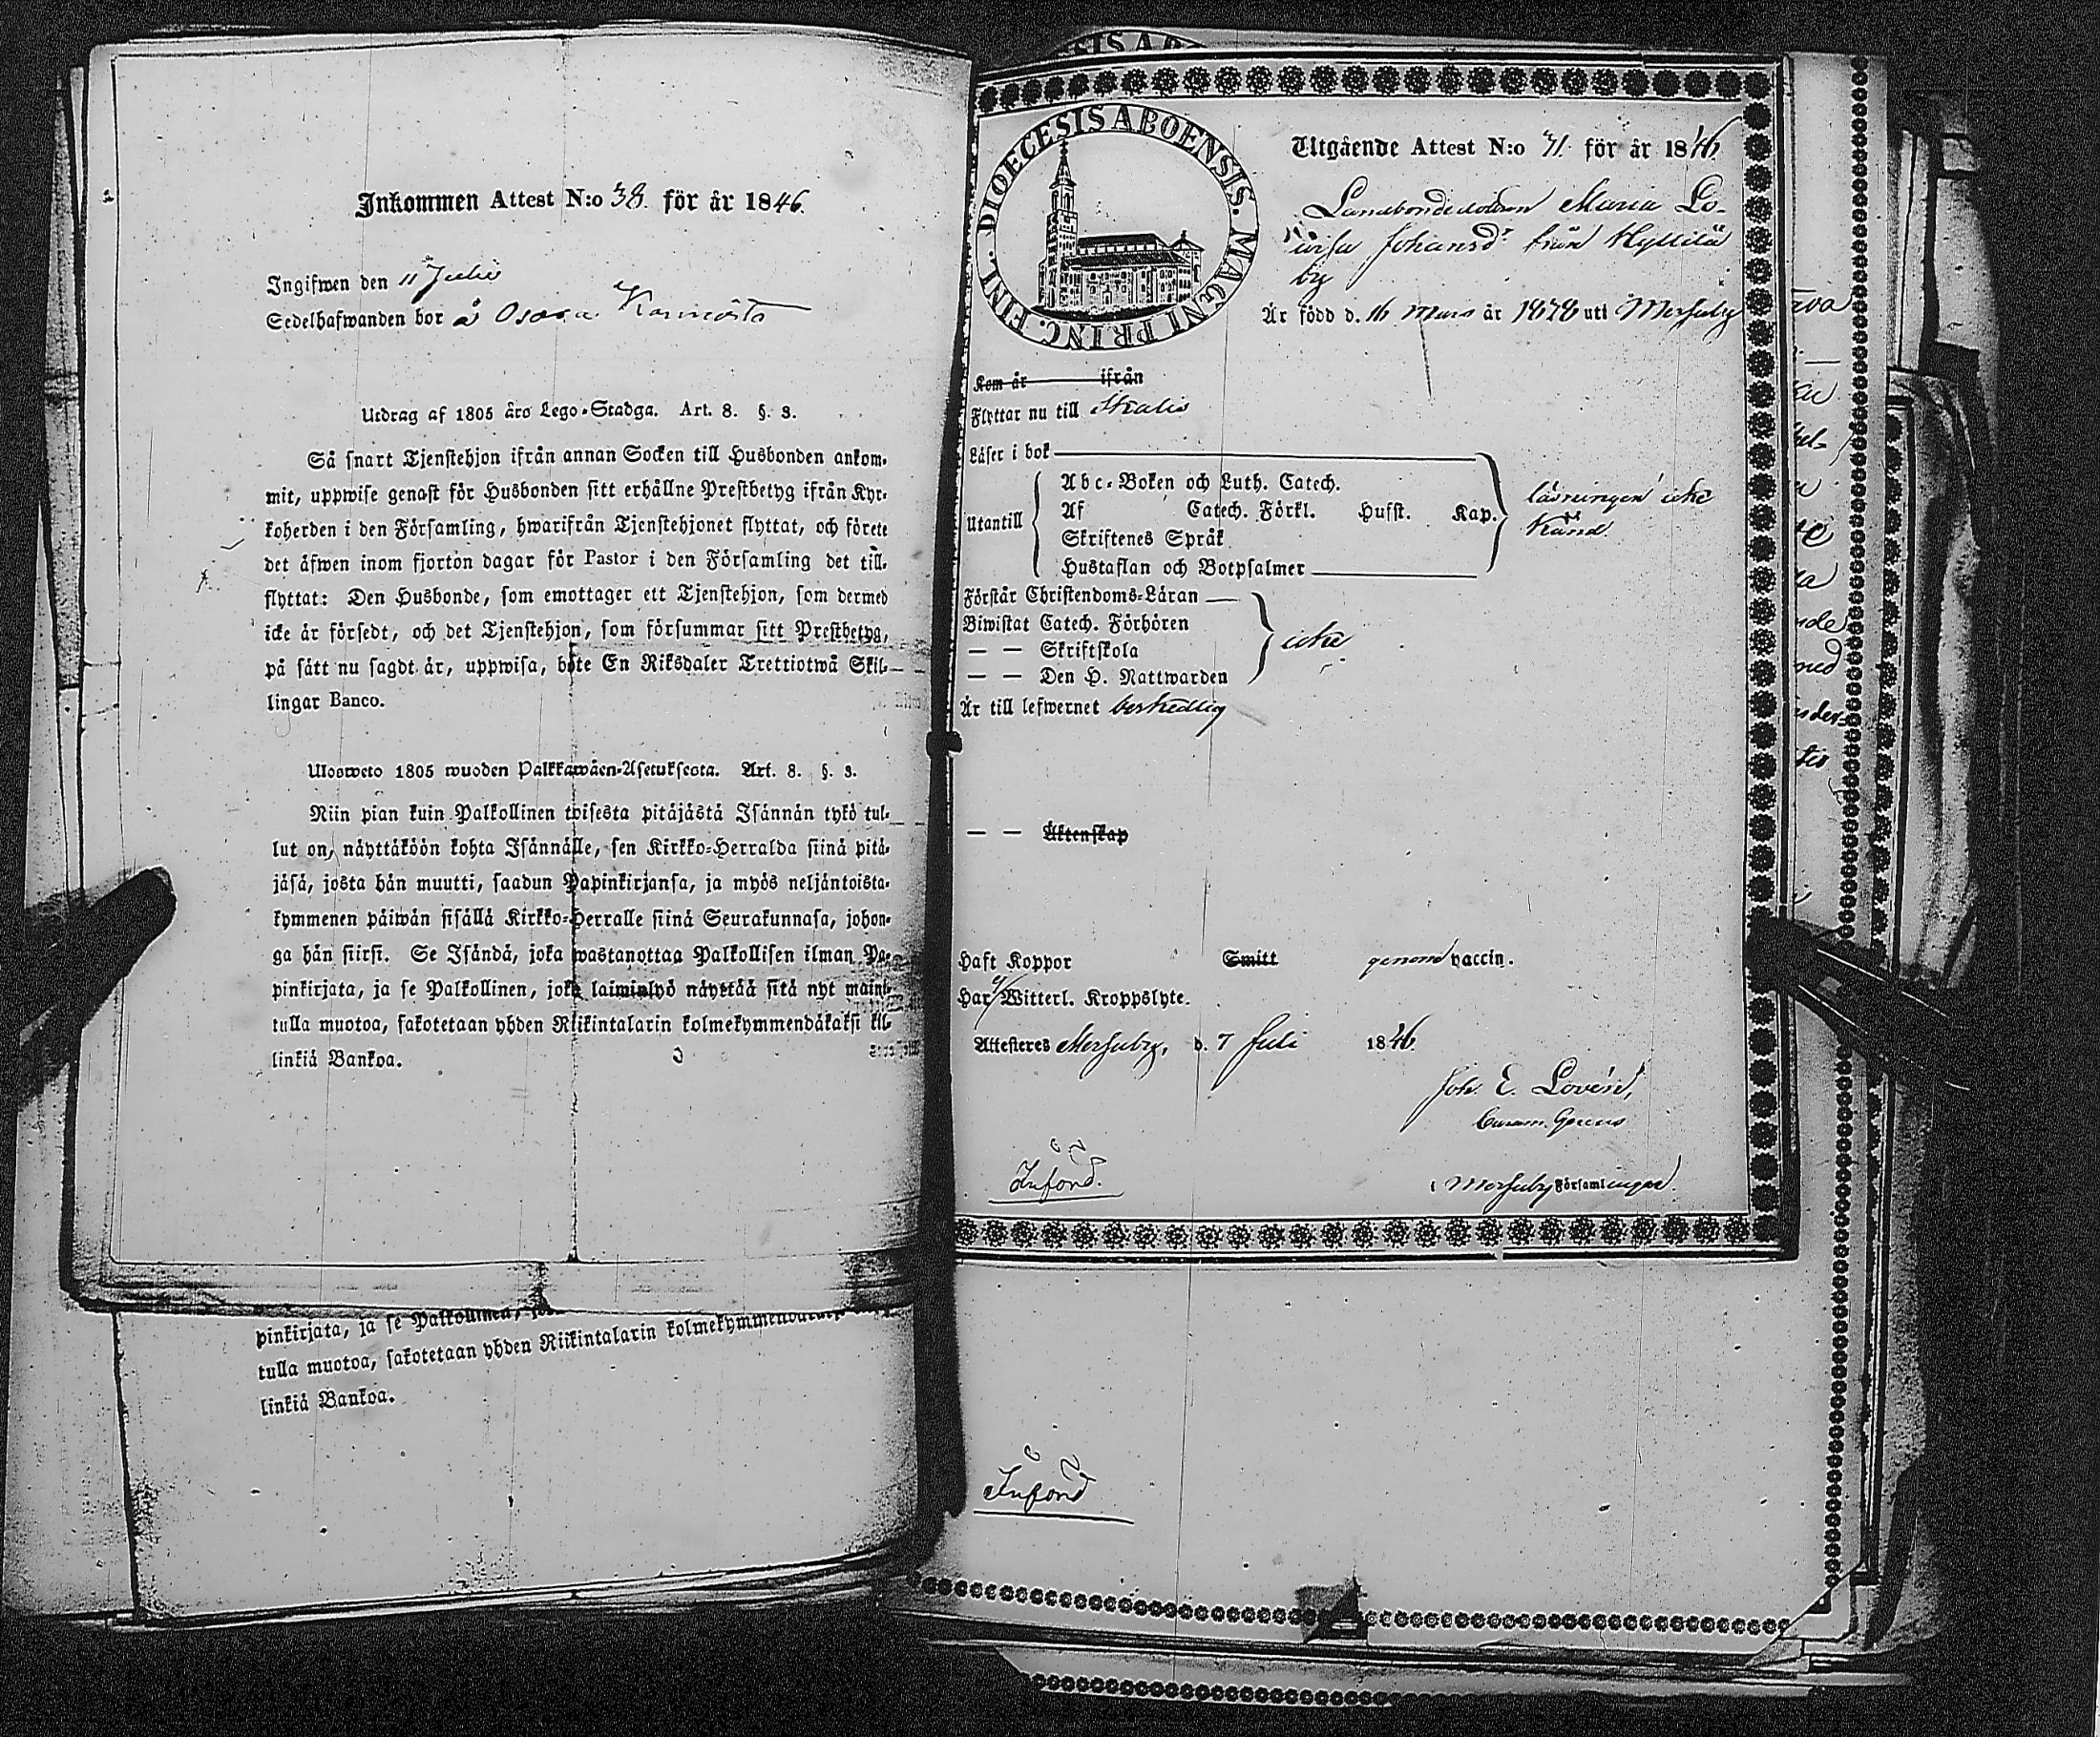 Inkommen Attest N:o 38. för år 1846.
Ingifwen den 11 Julii
Sedelhafwanden bor å Osara Karmösta
Utdrag af 1805 års Lego-Stadga. Art. 8. §. 3.
Så snart Tjenstehjon ifrån annan Socken till Husbonden ankom-
mit, uppwise genast för Husbonden sitt erhållne Prestbetyg ifrån Kyr-
koherden i den Församling, hwarifrån Tjenstehjonet flyttat, och förete
det äfwen inom fjorton dagar för Pastor i den Församling det till-
flyttat: Den Husbonde, som emottager ett Tjenstehjon, som dermed
icke är försedt, och det Tjenstehjon, som försummar sitt Prestbetyg,
på sätt nu sagdt är, uppwisa, böte En Riksdaler Trettiotwå Skil-
lingar Banco.
Ulosweto 1805 wuoden Palkkawäen-Asetuksesta. Art. 8. §. 3.
Niin pian kuin Palkollinen toisesta pitäjästä Isännän tykö tul-
lut on, näyttäköön kohta Isännälle, sen Kirkko-Herralda siinä pitä-
jäsä, josta hän muutti, saadun Papinkirjansa, ja myös neljäntoista-
kymmenen päiwän sisällä Kirkko-Herralle siinä Seurakunnasa, johon-
ga hän siirsi. Se Isändä, joka wastanottaa Palkollisen ilman Pa-
pinkirjata, ja se Palkollinen, joka laiminlyö näyttää sitä nyt maini-
tulla muotoa, sakotetaan yhden Riikintalarin kolmekymmendäkaksi kil-
linkiä Bankoa.
pinkirjata, ja se Palkollinen,
tulla muotoa, sakotetaan yhden Riikintalarin
linkiä Bankoa.
DIOECESIS ABOENSIS. MAGNI PRINC. FINL.
Utgående Attest N:o 71. för år 1846.
Landbondedottren Maria Lo-
visa Johansdr från Hyllilä
by
Är född d. 16 Mars år 1828 uti Merjuby
Kom år ifrån
Flyttar nu till Ikalis
Läser i bok
Utantill
Abc-Boken och Luth. Catech.
Af Catech. Förkl. Hufst. Kap.
Skriftenes Språk
Hustaflan och Botpsalmer
läsningen icke
känd.
Förstår Christendoms-Läran
Biwistat Catech. Förhören
— — Skriftskola
— — Den H. Nattwarden
icke
Är till lefwernet beskedlig
— — Äktenskap
Haft Koppor Smitt genom vaccin.
Har ej Witterl. Kroppslyte.
Attesteres Merjuby, d. 7 Juli 1846.
Joh. E. Lovén,
i Merjuby Församlingar.
Införd.
Införd